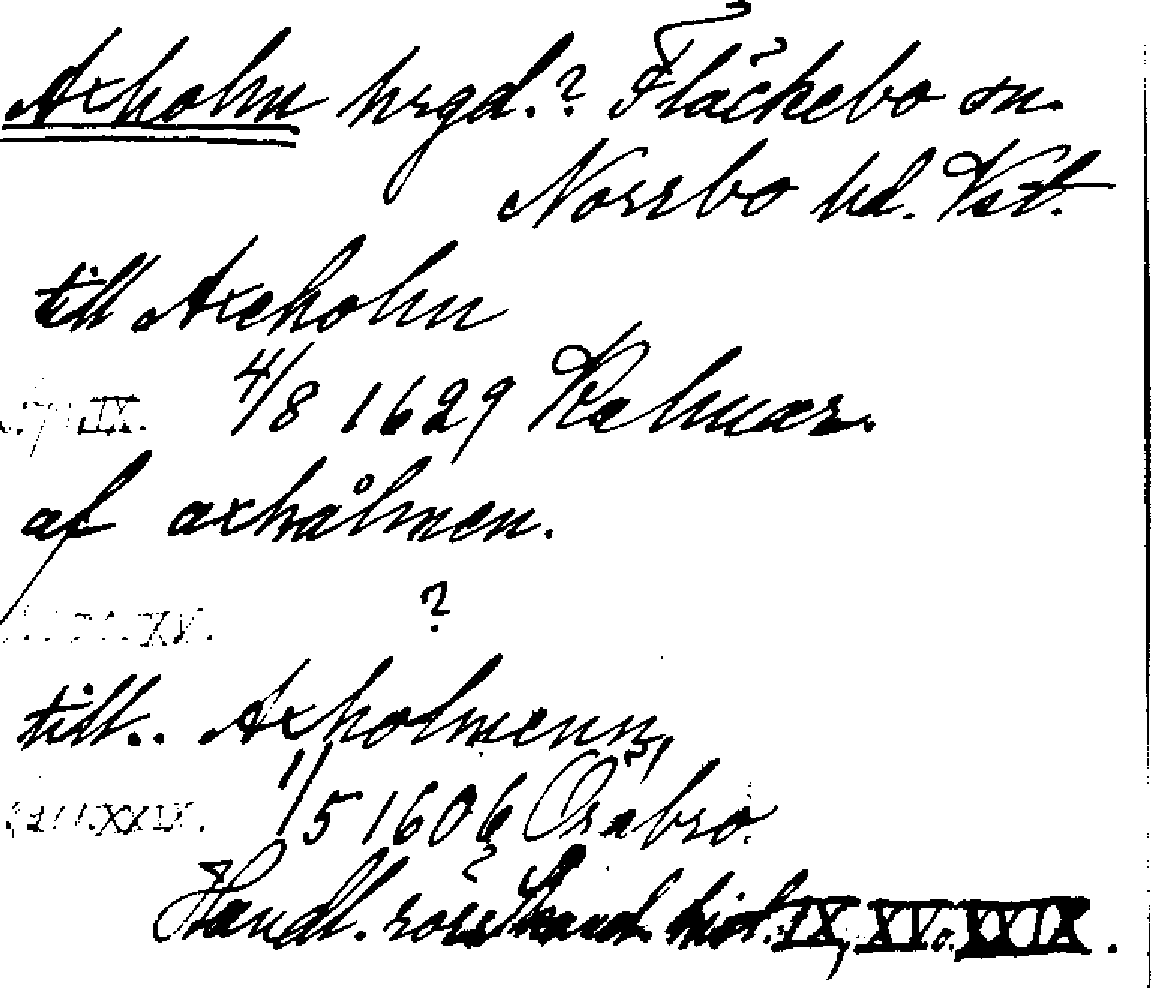 Axholm hrgd.? Fläckebo sn.
Norrbo hd. Vst.
till Axeholm
IX. 4/8 1629 Kalmar.
af axhålmen.
XV. ?
till.. Axholmenn,
XXIX. 1/5 1606 Örebro.
Handl. rör. Skand. hist. IX, XV o. XXIX.